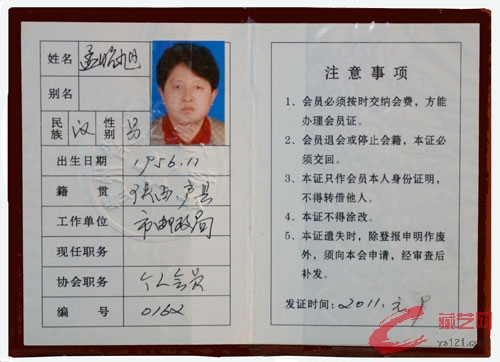 姓名 孟昭旭
别名
民族 汉 性别 男
出生日期 1956.11
籍贯 陕西户县
工作单位 市邮政局
现任职务
协会职务 个人会员
编号 0162
注意事项
1、会员必须按时交纳会费，方能
办理会员证。
2、会员退会或停止会籍，本证必
须交回。
3、本证只作会员本人身份证明，
不得转借他人。
4、本证不得涂改。
5、本证遗失时，除登报申明作废
外，须向本会申请，经审查后
补发。
发证时间：2011.元月
藏艺网
ys121.com